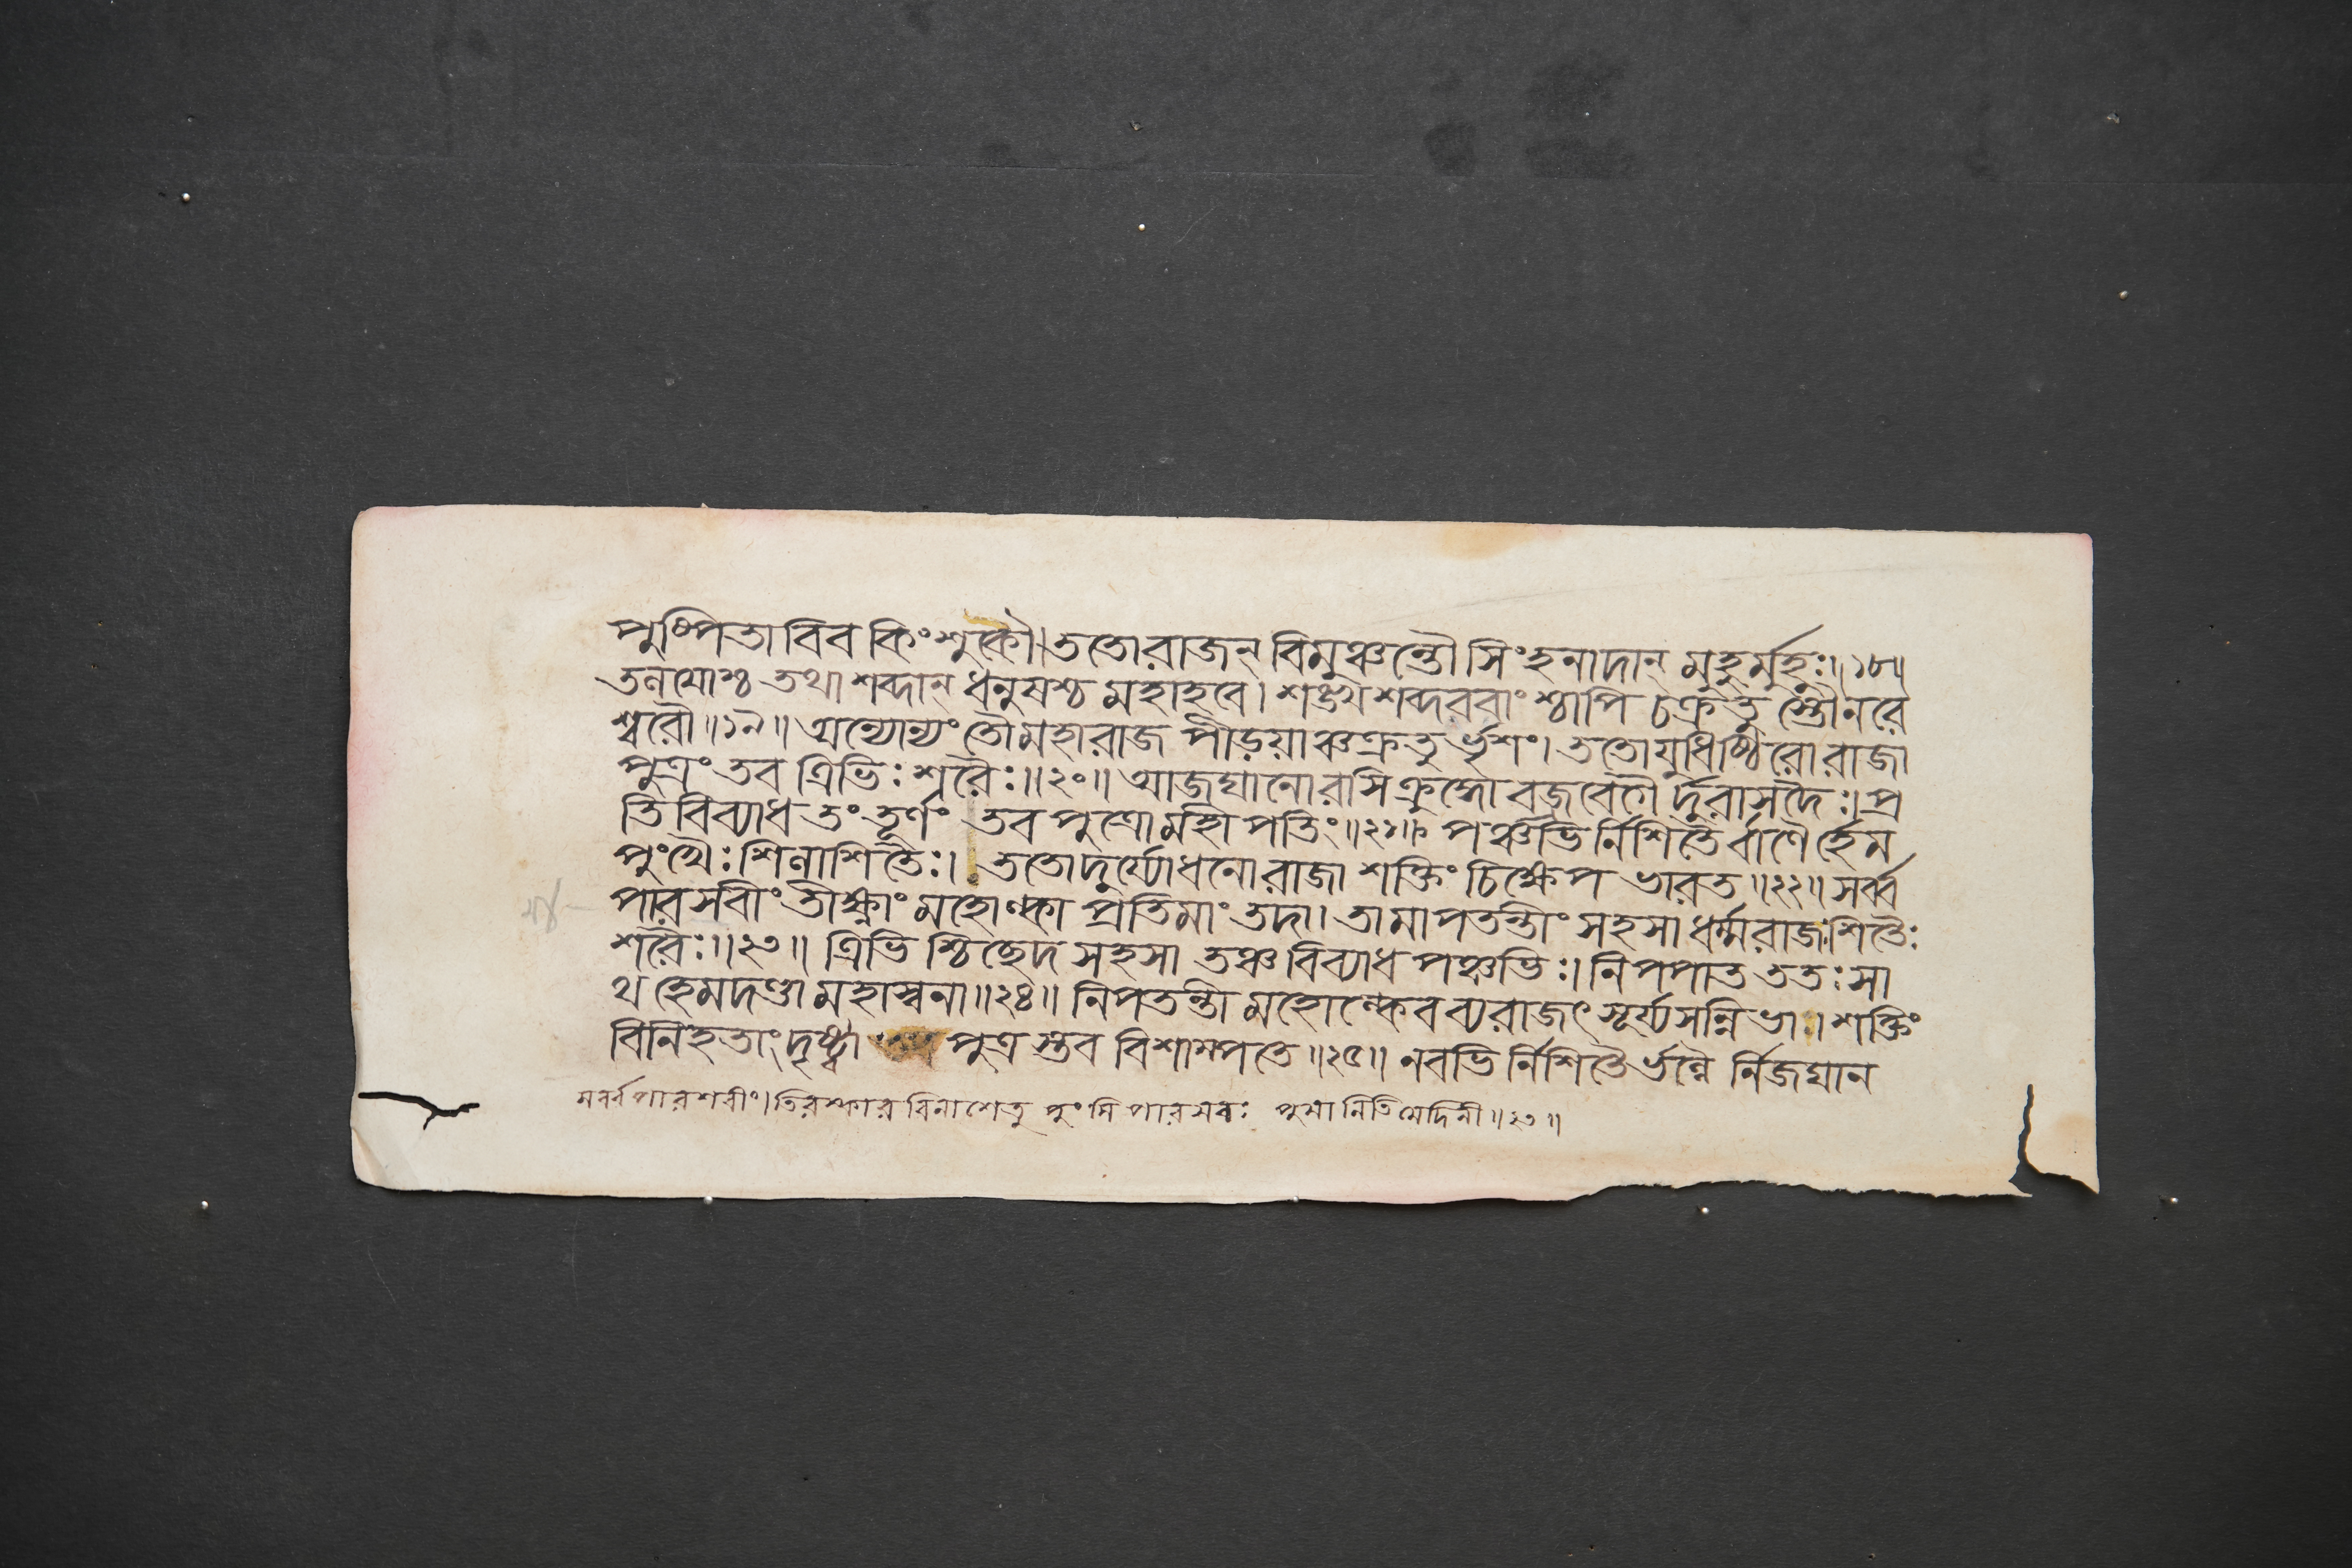 পুষ্পিতা বিব কিংশুকৌ। ততোরাজন্ বিমুঞ্চন্তৌ সিংহনাদান্ মুহুর্মুহুঃ।।১৮।।
তনযোশ্চ তথা শব্দান্ ধনুষশ্চ মহাহবে। শঙ্খশব্দরবাংশ্চাপি চক্রতু স্তৌনরে
শ্বরৌ।।১৯।। অন্যোন্যং তৌমহারাজ পীড়য়াঞ্চক্রতু র্ভৃশং। ততোযুধিষ্ঠিরোরাজা
পুত্রং তব ত্রিভিঃ শরৈঃ।।২০।। আজঘানোরসি ক্রুদ্ধো বজ্রবেগৈ র্দুরাসদৈঃ। প্র
তি বিব্যাধ তং তূর্ণং তব পুত্রোমহী পতিং।।২১।। পঞ্চভি র্নিশিতৈ র্বাণৈ র্হেম
পুংখৈঃ শিলাশিতৈঃ। ততোদুর্য্যোধনোরাজা শক্তিং চিক্ষেপ ভারত।।২২।। সর্ব্ব
পারসবীং তীক্ষ্ণাং মহোল্কা প্রতিমাং তদা। তামাপতন্তীং সহসা ধর্ম্মরাজঃশিতৈঃ
শরৈঃ।।২৩।। ত্রিভি শ্চিছেদ সহসা তঞ্চ বিব্যাধ পঞ্চভিঃ। নিপপাত ততঃ সা
থ হেমদণ্ডা মহাস্বনা।।২৪।। নিপতন্তী মহোল্কেব ব্যরাজৎ সূর্য্যসন্নিভা। শক্তিং
বিনিহতাং দৃষ্ট্বা পুত্র স্তব বিশাম্পতে।।২৫।। নবভি র্নিশিতৈ র্ভল্লৈ র্নিজঘান
সর্ব্ব পারশবীং। তিরস্কার বিনাশেতু পুংসি পারসবঃ পুমা নিতিমেদিনী।।২৩।।